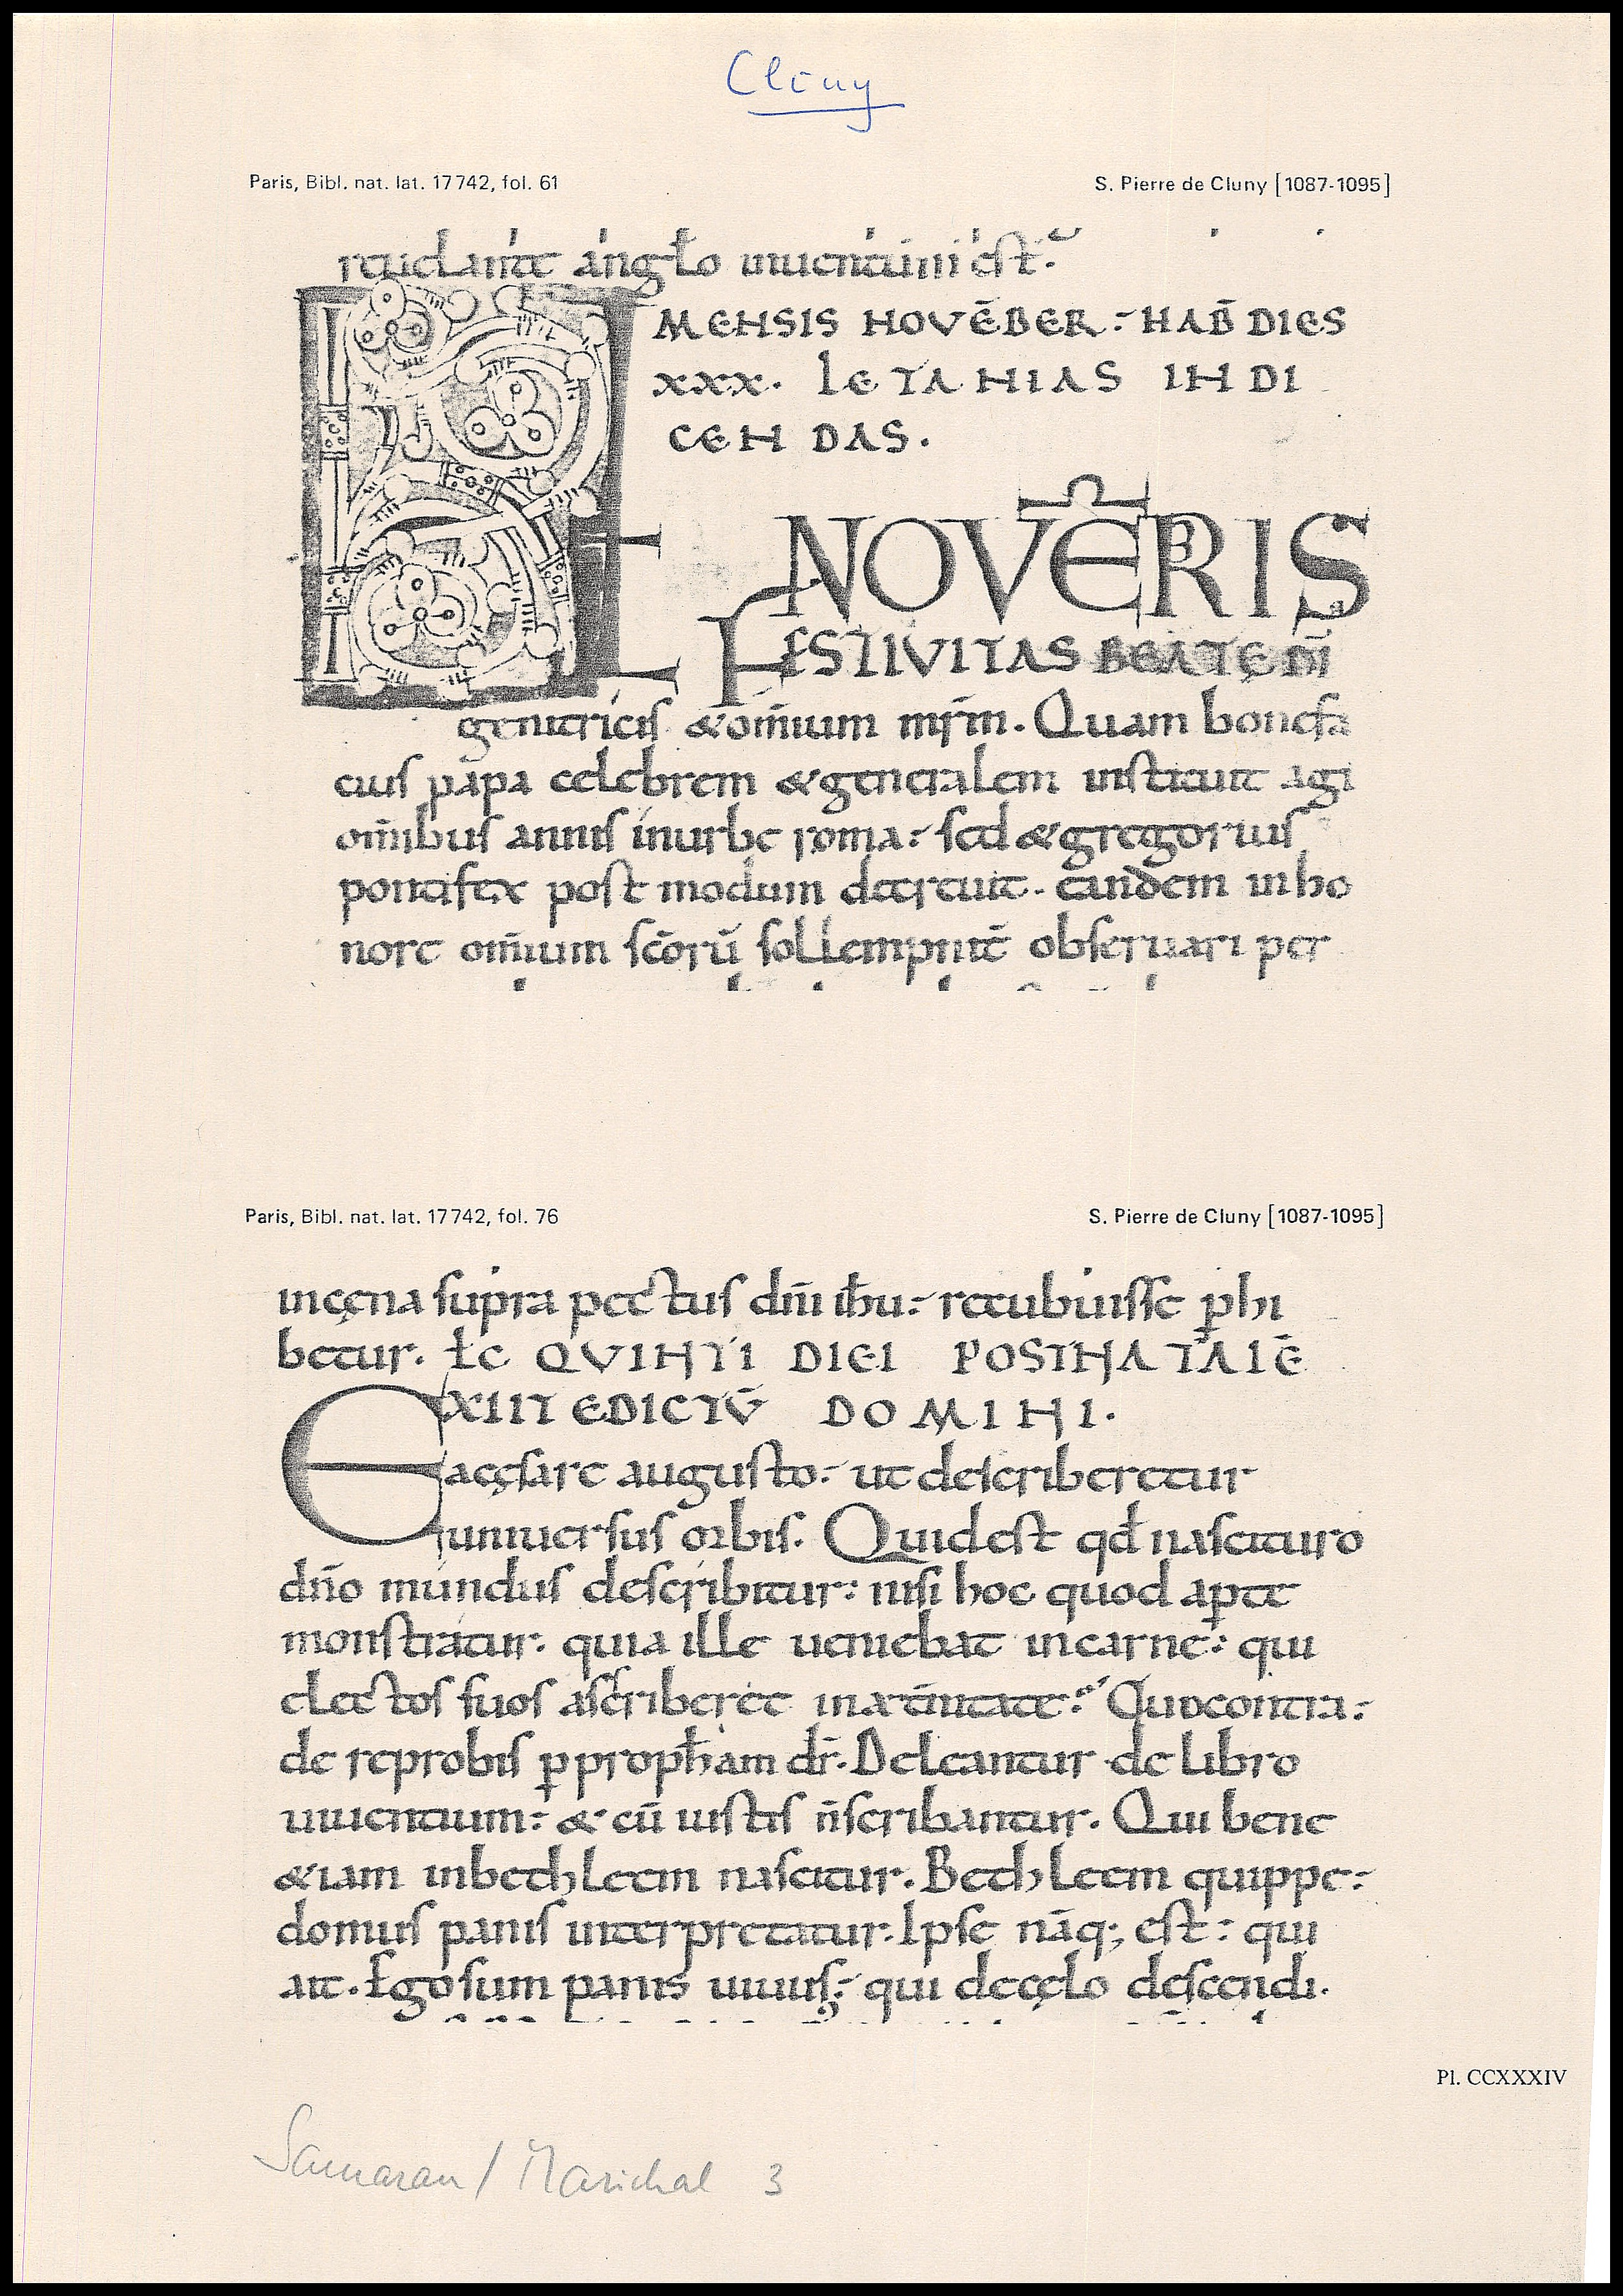 Cluny
Paris, Bibl. nat. lat. 17742, fol. 61
S. Pierre de Cluny [1087-1095]
reuelante angło inuentum est.
MENSIS NOVĒBER. HAB̄ DIES
XXX. LETANIAS INDI
CENDAS.
ET NOVĒRIS
FESTIVITAS BEATĘ DĪ
genitricis &om̄ium mr̄m. Quam bonefa
cius papa celebrem &generalem instituit agi
om̄ibus annis inurbe roma: sed &gregorius
pontifex post modum decreuit. eandem inho
nore om̄ium sc̄orū sollempnit̄ obseruari per
Paris, Bibl. nat. lat. 17742, fol. 76
S. Pierre de Cluny [1087-1095]
incęna supra pectus dn̄i ih̄u: recubuisse phi
betur. łc QVINTI DIEI POSTNATALĒ
EXIIT EDICTV̄ DOMINI.
acęsare augusto: ut describeretur
uniuersus orbis. Quid est qđ nascituro
dn̄o mundus describitur: nisi hoc quod apte
monstratur. quia ille ueniebat incarne: qui
electos suos ascriberet inaet̄nitate. Quocontra:
de reprobis ꝑ proph̄am dr̄. Deleantur de libro
uiuentium: & cū iustis n̄scribantur. Qui bene
&iam inbethleem nascitur. Bethleem quippe:
domus panis interpretatur. Ipse nāq; est: qui
ait. Ego sum panis uiuus: qui decęlo descendi.
Pl. CCXXXIV
Samaran / Marichal 3